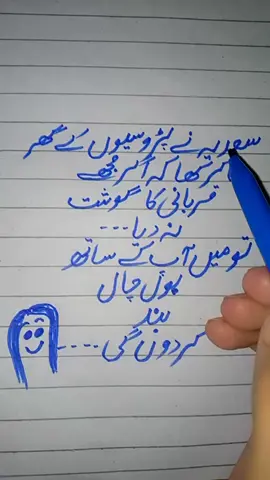 سعدیہ نے پڑوسیوں کے گھر
کر کہا کہ اگر مجھے
قربانی کا گوشت
نہ دیا...
تو میں آپ کے ساتھ
بول چال
بند
کر دوں گی....